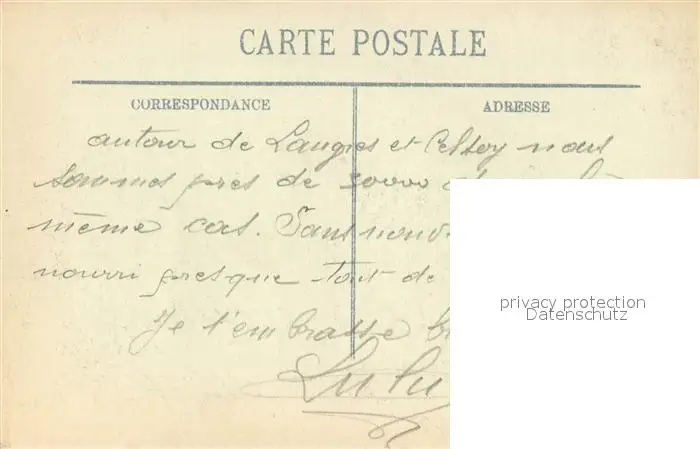 CARTE POSTALE
CORRESPONDANCE
ADRESSE
autour de Langres et Celsoy nous
sommes près de 30000
même cas. Sans nouv
nourri presque tout de
Je t'embrasse
Lulu
privacy protection
Datenschutz